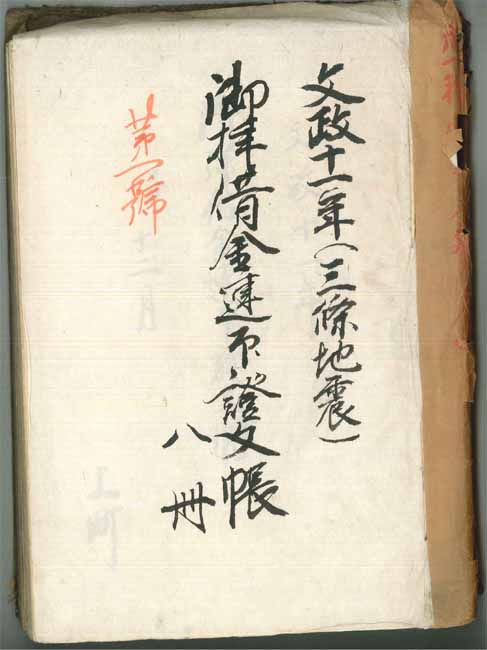 文政十一年(三條地震)
御拝借金連印證文帳
八冊
第一號